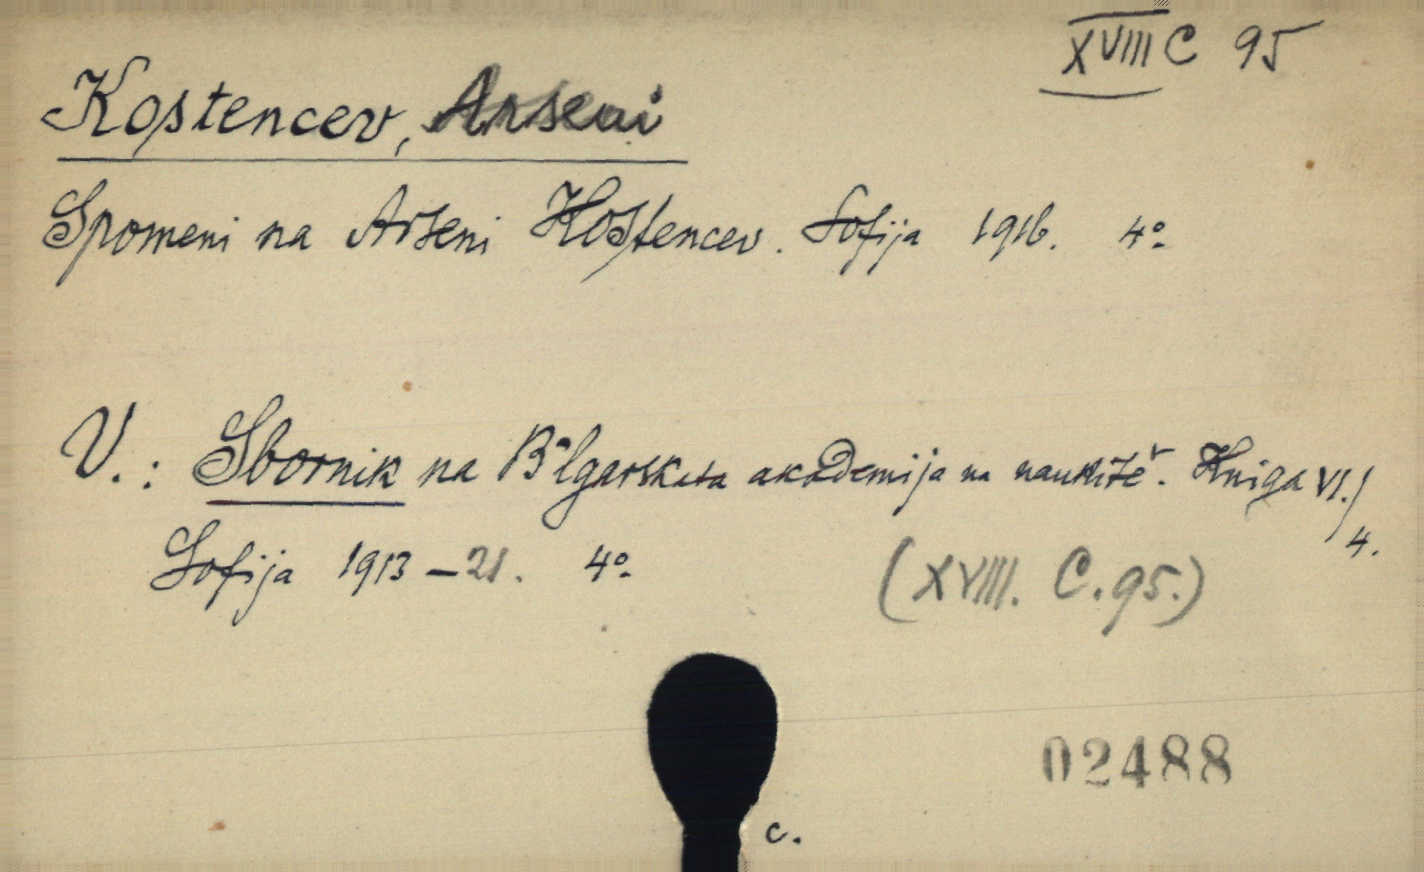 XVIII C 95
Kostencev, Arseni
Spomeni na Arseni Kostencev. Sofija 1916. 4º
V.: Sbornik na Bŭlgarskata akademija na naukitě. Kniga VI./4.
Sofija 1913-21. 4º
(XVIII. C. 95.)
02488
c.